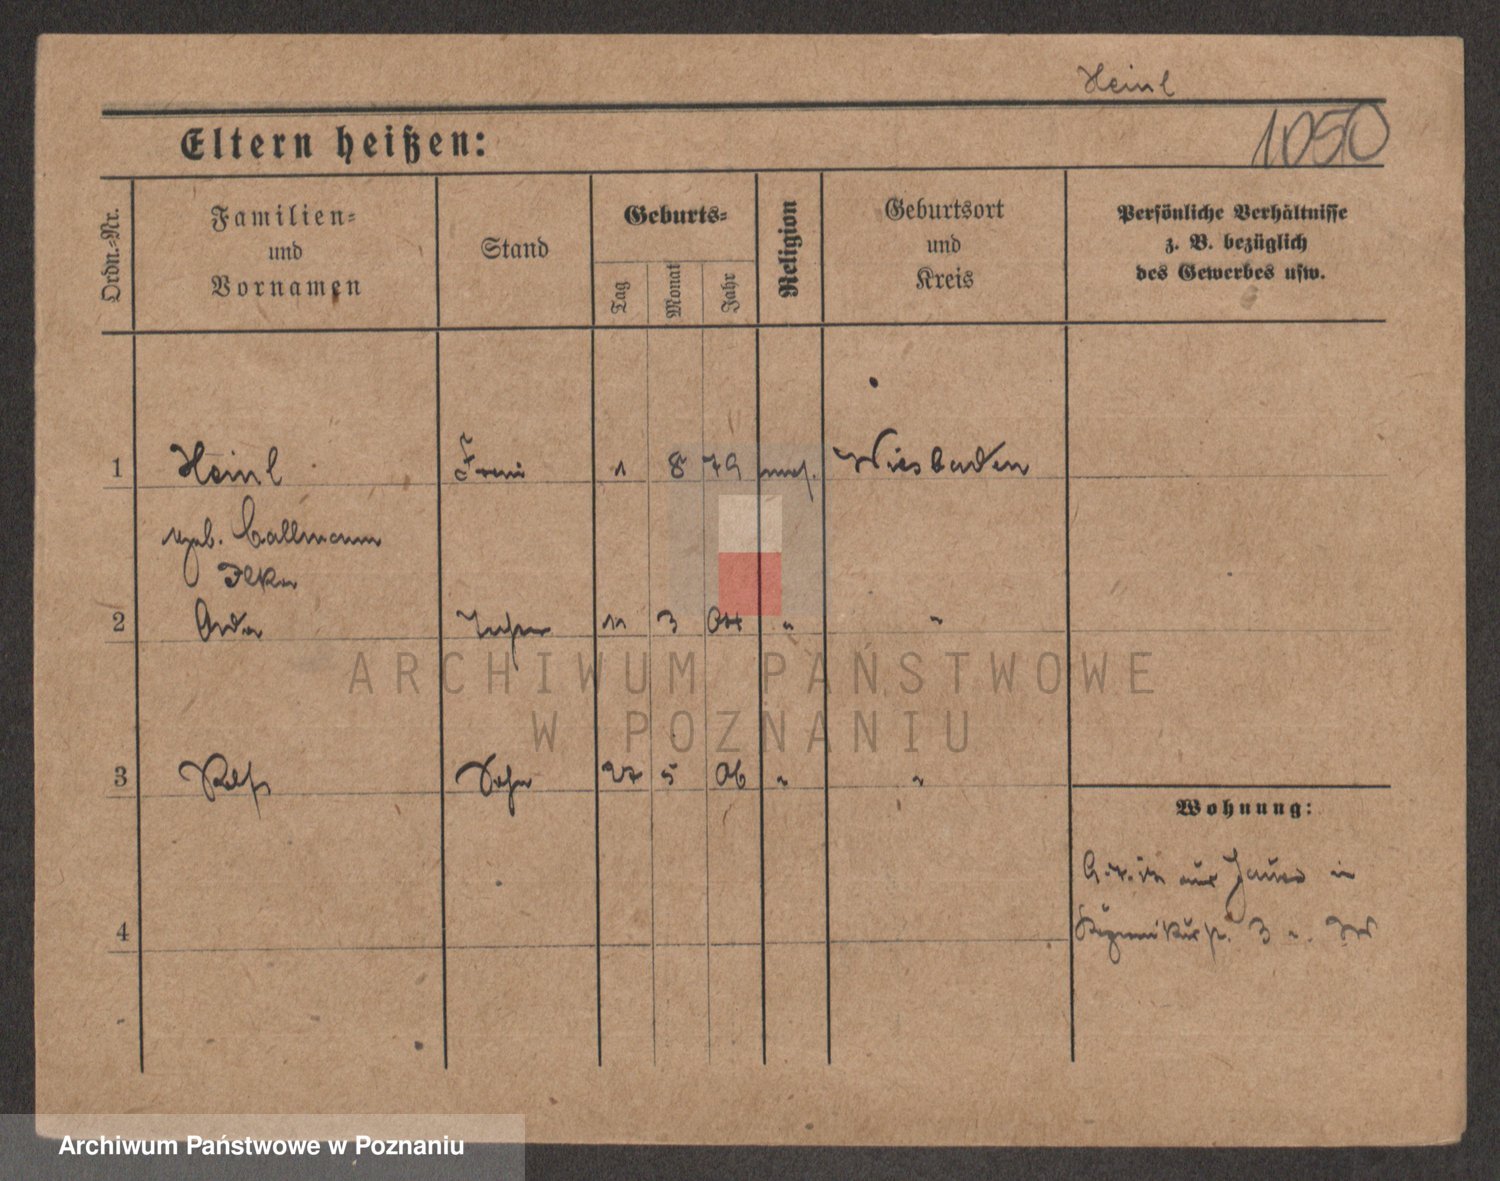 Heinl
1050
Eltern heißen:
Ordn.-Nr.
Familien-
und
Vornamen
Stand
Geburts-
Tag
Monat
Jahr
Religion
Geburtsort
und
Kreis
Persönliche Verhältnisse
z. B. bezüglich
des Gewerbes usw.
1 Heinl 1 8 79 Wiesbaden
geb. Callmann
2 11 3 04 " "
3 Sohn 27 5 06 " "
Wohnung:
4
aus in
3
ARCHIWUM PAŃSTWOWE
W POZNANIU
Archiwum Państwowe w Poznaniu